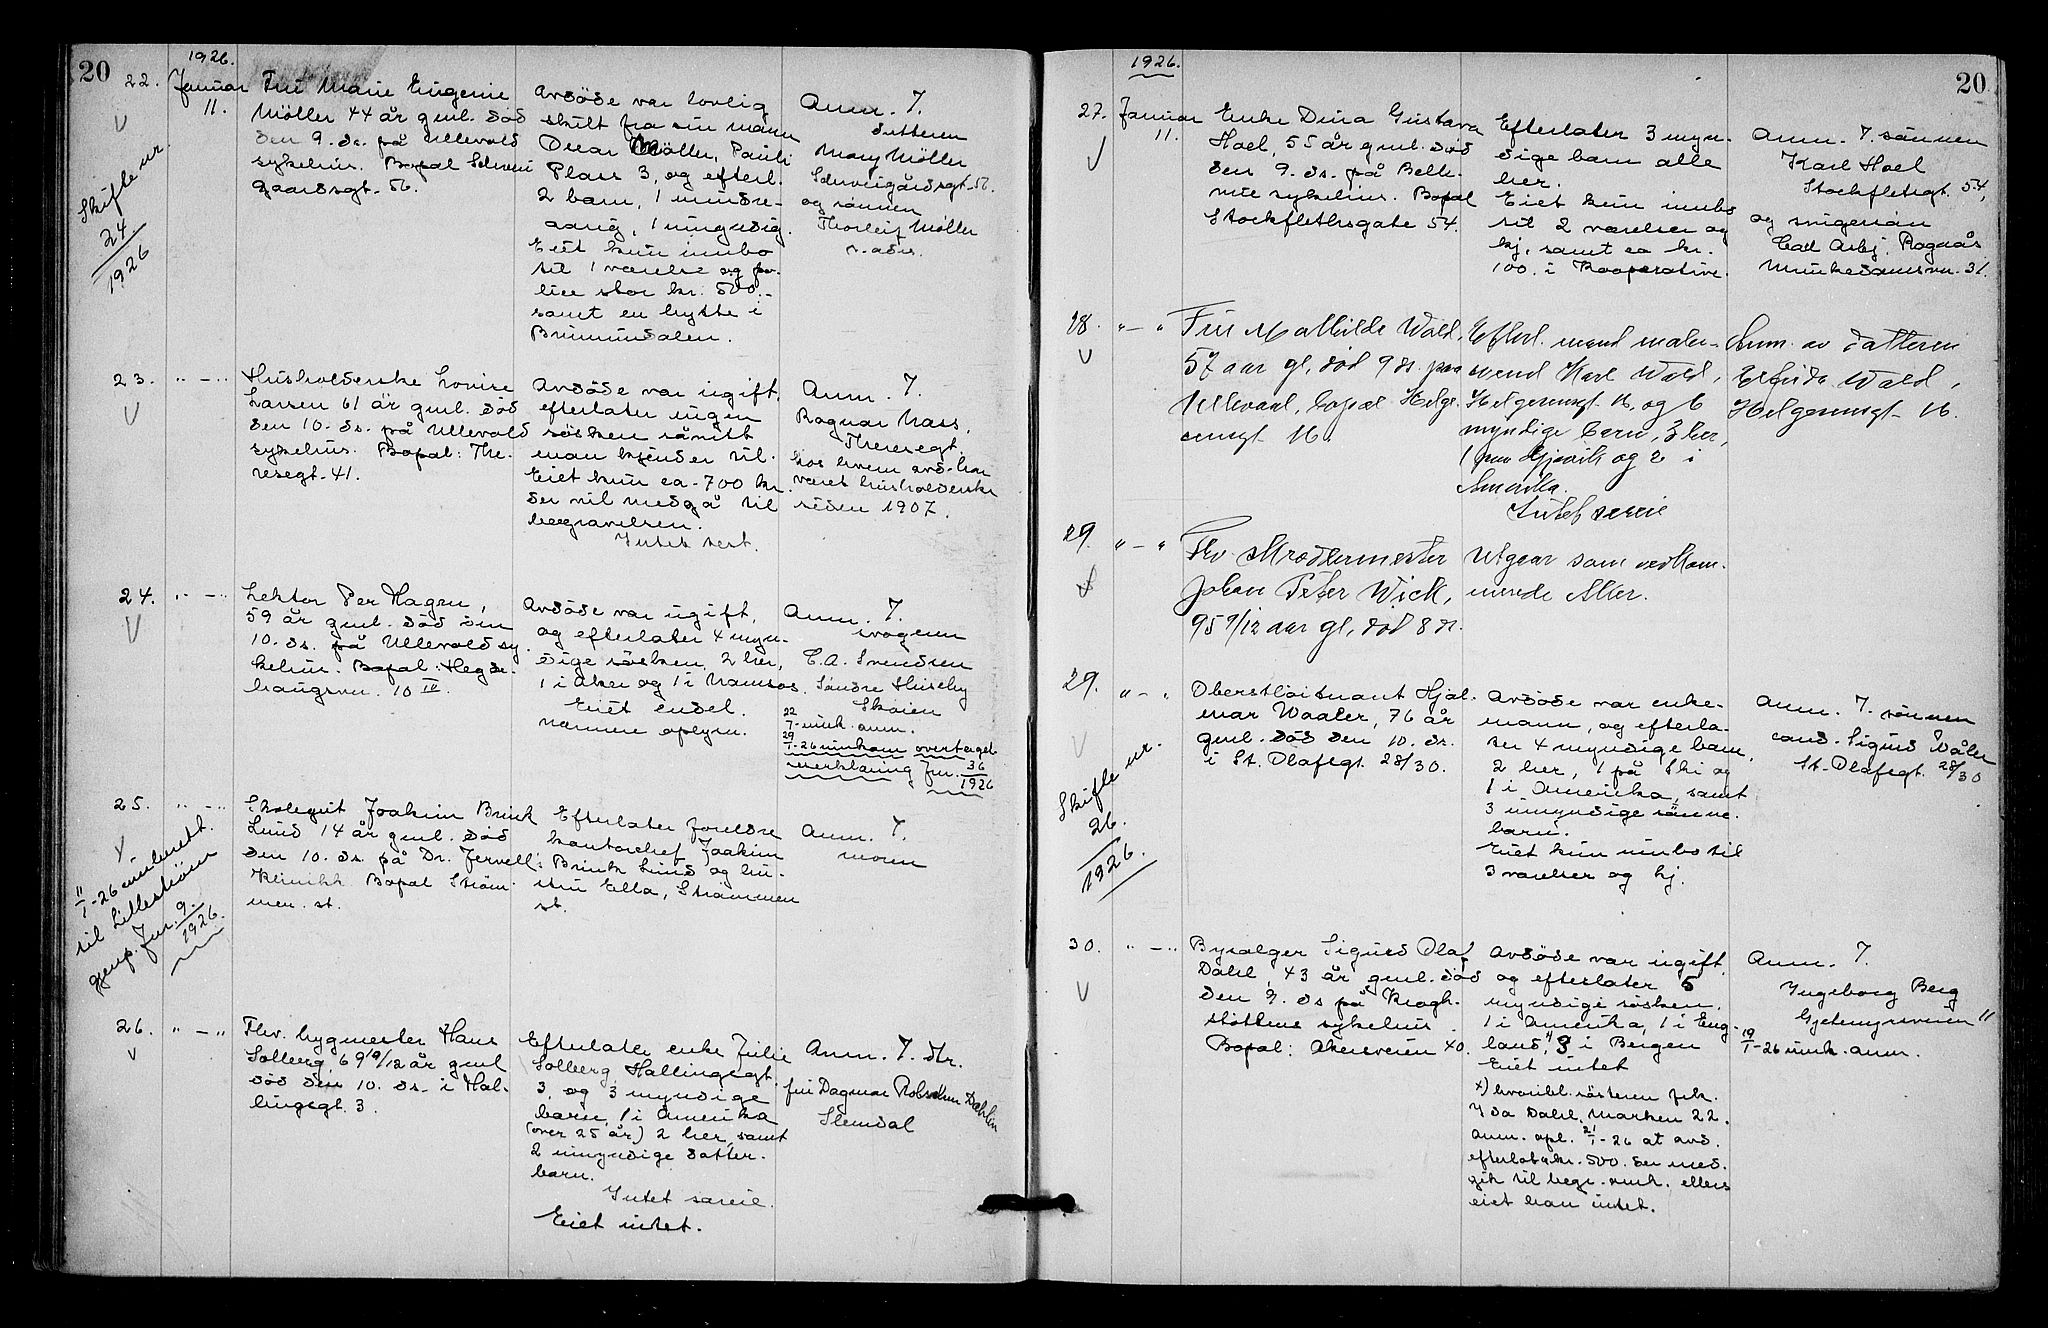 20
1926.
22.
Januar
11.
Fru Marie Eugenie
Möller 44 år gml. död
den 9. ds. på Ullevold
sykehus. Bopæl Schwei
gaardsgt. 56.
Avdöde var lovlig
skilt fra sin mann
Oscar Möller, Pauls
Plass 3, og efterl.
2 barn, 1 mindre-
aarig, 1 umyndig.
Eiet kun innbo
til 1 værelse og po-
lise stor kr. 500.-
samt en hytte i
Brumunddalen.
Anm. 7.
datteren
Mary Möller
Schweigårdsgt. 56.
og sönnen
Thorleif Möller
s. adr.
Skifte nr.
24
1926
23.
" - "
Husholderske Lovise
Larsen 61 år gml. död
den 10. ds. på Ullevold
sykehus. Bopæl: The-
resegt. 41.
Avdöde var ugift,
efterlater ingen
sösken såvitt
man kjender til.
Eiet kun ca. 700 kr.
der vil medgå til
begravelsen.
Intet test.
Anm. 7.
Ragnar Nass,
Theresegt.
hos hvem avd. har
været husholderske
siden 1907.
24.
" - "
Lektor Per Hagen,
59 år gml. död den
10. ds. på Ullevold sy
kehus. Bopæl: Hegde-
haugsvn. 10 IV.
Avdöde var ugift,
og efterlater 4 myn-
dige sösken, 2 her,
1 i Aker og 1 i Namsos.
Eiet endel.
nærmere oplysn.
Anm. 7.
svogeren
C. A. Svendsen
Søndre Huseby
Skøien
22
1 - innk. anm.
29
1 - 26 innkom overtagel
seserklæring Jnr. 36
1926
25.
" - "
Skolegut Joakim Brink
Lund 14 år gml. död
den 10. ds. på Dr. Jervell:
Klinikk. Bopæl Ström-
men. st.
Efterlater foreldre
kontorchef Joakim
Brink Lund og hu-
stru Ella, Strömmen
st.
Anm. 7.
moren
11
1 - 26 innberett.
til Lilleström
gjenp. Jnr. 9.
1926.
26.
" - "
Fhv. bygmester Hans
Solberg, 69 10/12 år gml
död den 10. ds. i Hal-
lingsgt. 3.
Efterlater enke Julie
Solberg Hallingsgt.
3, og 3 myndige
barn, 1 i Amerika
(over 25 år) 2 her, samt
2 umyndige datter-
barn.
Intet særeie.
Eiet intet.
Anm. 7. str.
fru Dagmar Dahlin
Slemdal
1926.
20
27.
Januar
11.
Enke Dina Gustava
Hoel, 55 år gml. död
den 9. ds. på Beth-
nie sykehus. Bopæl
Stockflethsgate 54.
Efterlater 3 myn-
dige barn alle
her.
Eiet kun innbo
til 2 værelser og
kj. samt ca kr.
100. i Kooperative.
Anm. 7. sönnen
Karl Hoel
Stockfletsgt. 54,
og svigersön
Carl Asbj. Rognås
Munkedamsvn. 31.
28.
" - "
Fru Mathilde Wold,
57 aar gl, död 9 ds. paa
Ullevaal, bopæl Helge-
sensgt 16.
Efterl. mand maler-
svend Karl Wold,
Helgesensgt 16, og 6
myndige børn, 3 her,
1 paa Gjøvik og 2 i
Amerika.
Intet særeie
Anm. av datteren
Elfrida Wold,
Helgesensgt 16.
29.
" - "
Fhv. Skræddermester
Johan Peter Wick,
95 9/12 aar gl, död 8 ds.
Utgaar som vedkom-
mende Aker.
29.
" - "
Oberstløitnant Hjal-
mar Waaler, 76 år
gml. död den 10. ds.
i St. Olafsgt. 28/30.
Avdöde var enke-
mann, og efterla-
ter 4 myndige barn,
2 her, 1 på Ski og
1 i Amerika, samt
3 umyndige sönne-
barn.
Eiet kun innbo til
3 værelser og kj.
Anm. 7. sönnen
cand. Sigurd Våler
St. Olafsgt. 28/30
Skifte nr.
26.
1926.
30.
" - "
Bysælger Sigurd Olaf
Dahl, 43 år gml. död
den 9. ds på Krogh-
stöttens sykehus.
Bopæl: Akersveien 40.
Avdöde var ugift,
og efterlater 5
myndige sösken,
1 i Amerika, 1 i Eng-
land, x) 3 i Bergen
Eiet intet
x) hvoribl. sösteren frk.
Ida Dahl, Marken 22.
anm. opl. 21/1-26 at avd.
efterlot kr. 500. der med-
gik til begr. omk. ellers
eiet han intet.
Anm. 7.
Ingeborg Berg
Gjetemyrsveien 11
19
1 - 26 innk. anm.